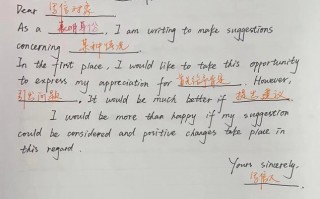 Dear 写信对象
As a 表明身份, I am writing to make suggestions
concerning 某种情况.
In the first place, I would like to take this opportunity
to express my appreciation for 首先给予肯定. However,
引出问题. It would be much better if 提出建议.
I would be more than happy if my suggestion
could be considered and positive changes take place in
this regard.
Yours sincerely.
写信人